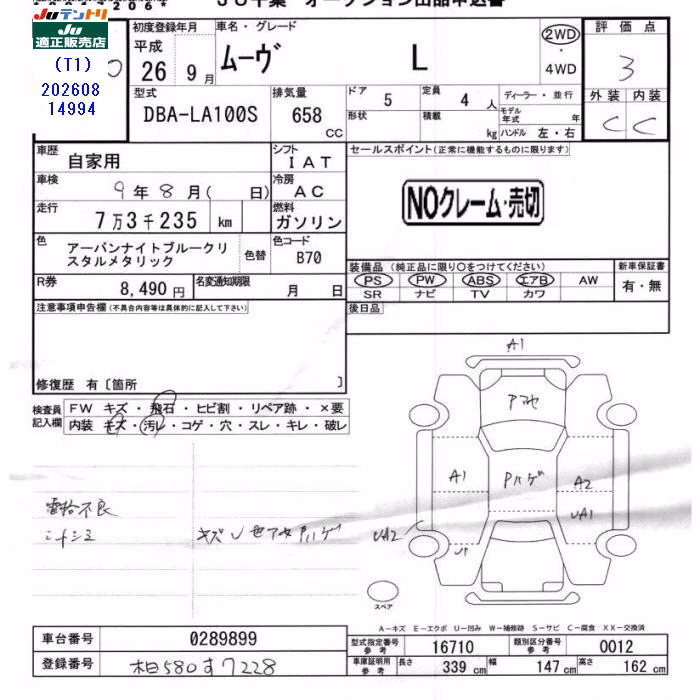 JU千葉 オークション出品申込書
JUテントリ
JU
適正販売店
(T1)
202608
14994
初度登録年月
平成
26年 9月
車名・グレード
ムーヴ L
2WD
・
4WD
評価点
3
型式
DBA-LA100S
排気量
658
CC
ドア
5
定員
4 人
ディーラー・並行
形状
積載
kg
モデル年式
年
ハンドル 左・右
外装 内装
C C
車歴
自家用
シフト
IAT
車検
9年8月( 日)
冷房
AC
走行
7万3千235 km
燃料
ガソリン
色
アーバンナイトブルークリ
スタルメタリック
色替
色コード
B70
R券
8,490円
名変通知期限
月 日
セールスポイント(正常に機能するものに限ります)
NOクレーム・売切
装備品 (純正品に限り○をつけてください)
新車保証書
PS PW ABS エアB AW
SR ナビ TV カワ
有・無
後日品
注意事項申告欄(不具合内容等は具体的に記入して下さい)
修復歴 有〔箇所 〕
検査員
記入欄
FW キズ・飛石・ヒビ割・リペア跡・×要
内装 キズ・汚レ・コゲ・穴・スレ・キレ・破レ
A1
Pハゲ
A1
A2
UA1
UA2
スペア
A-キズ E-エクボ U-凹み W-補修跡 S-サビ C-腐食 XX-交換済
車台番号
0289899
登録番号
柏580す7228
型式指定番号
参考
16710
類別区分番号
参考
0012
車庫証明用
参考
長さ
339 cm
幅
147 cm
高さ
162 cm